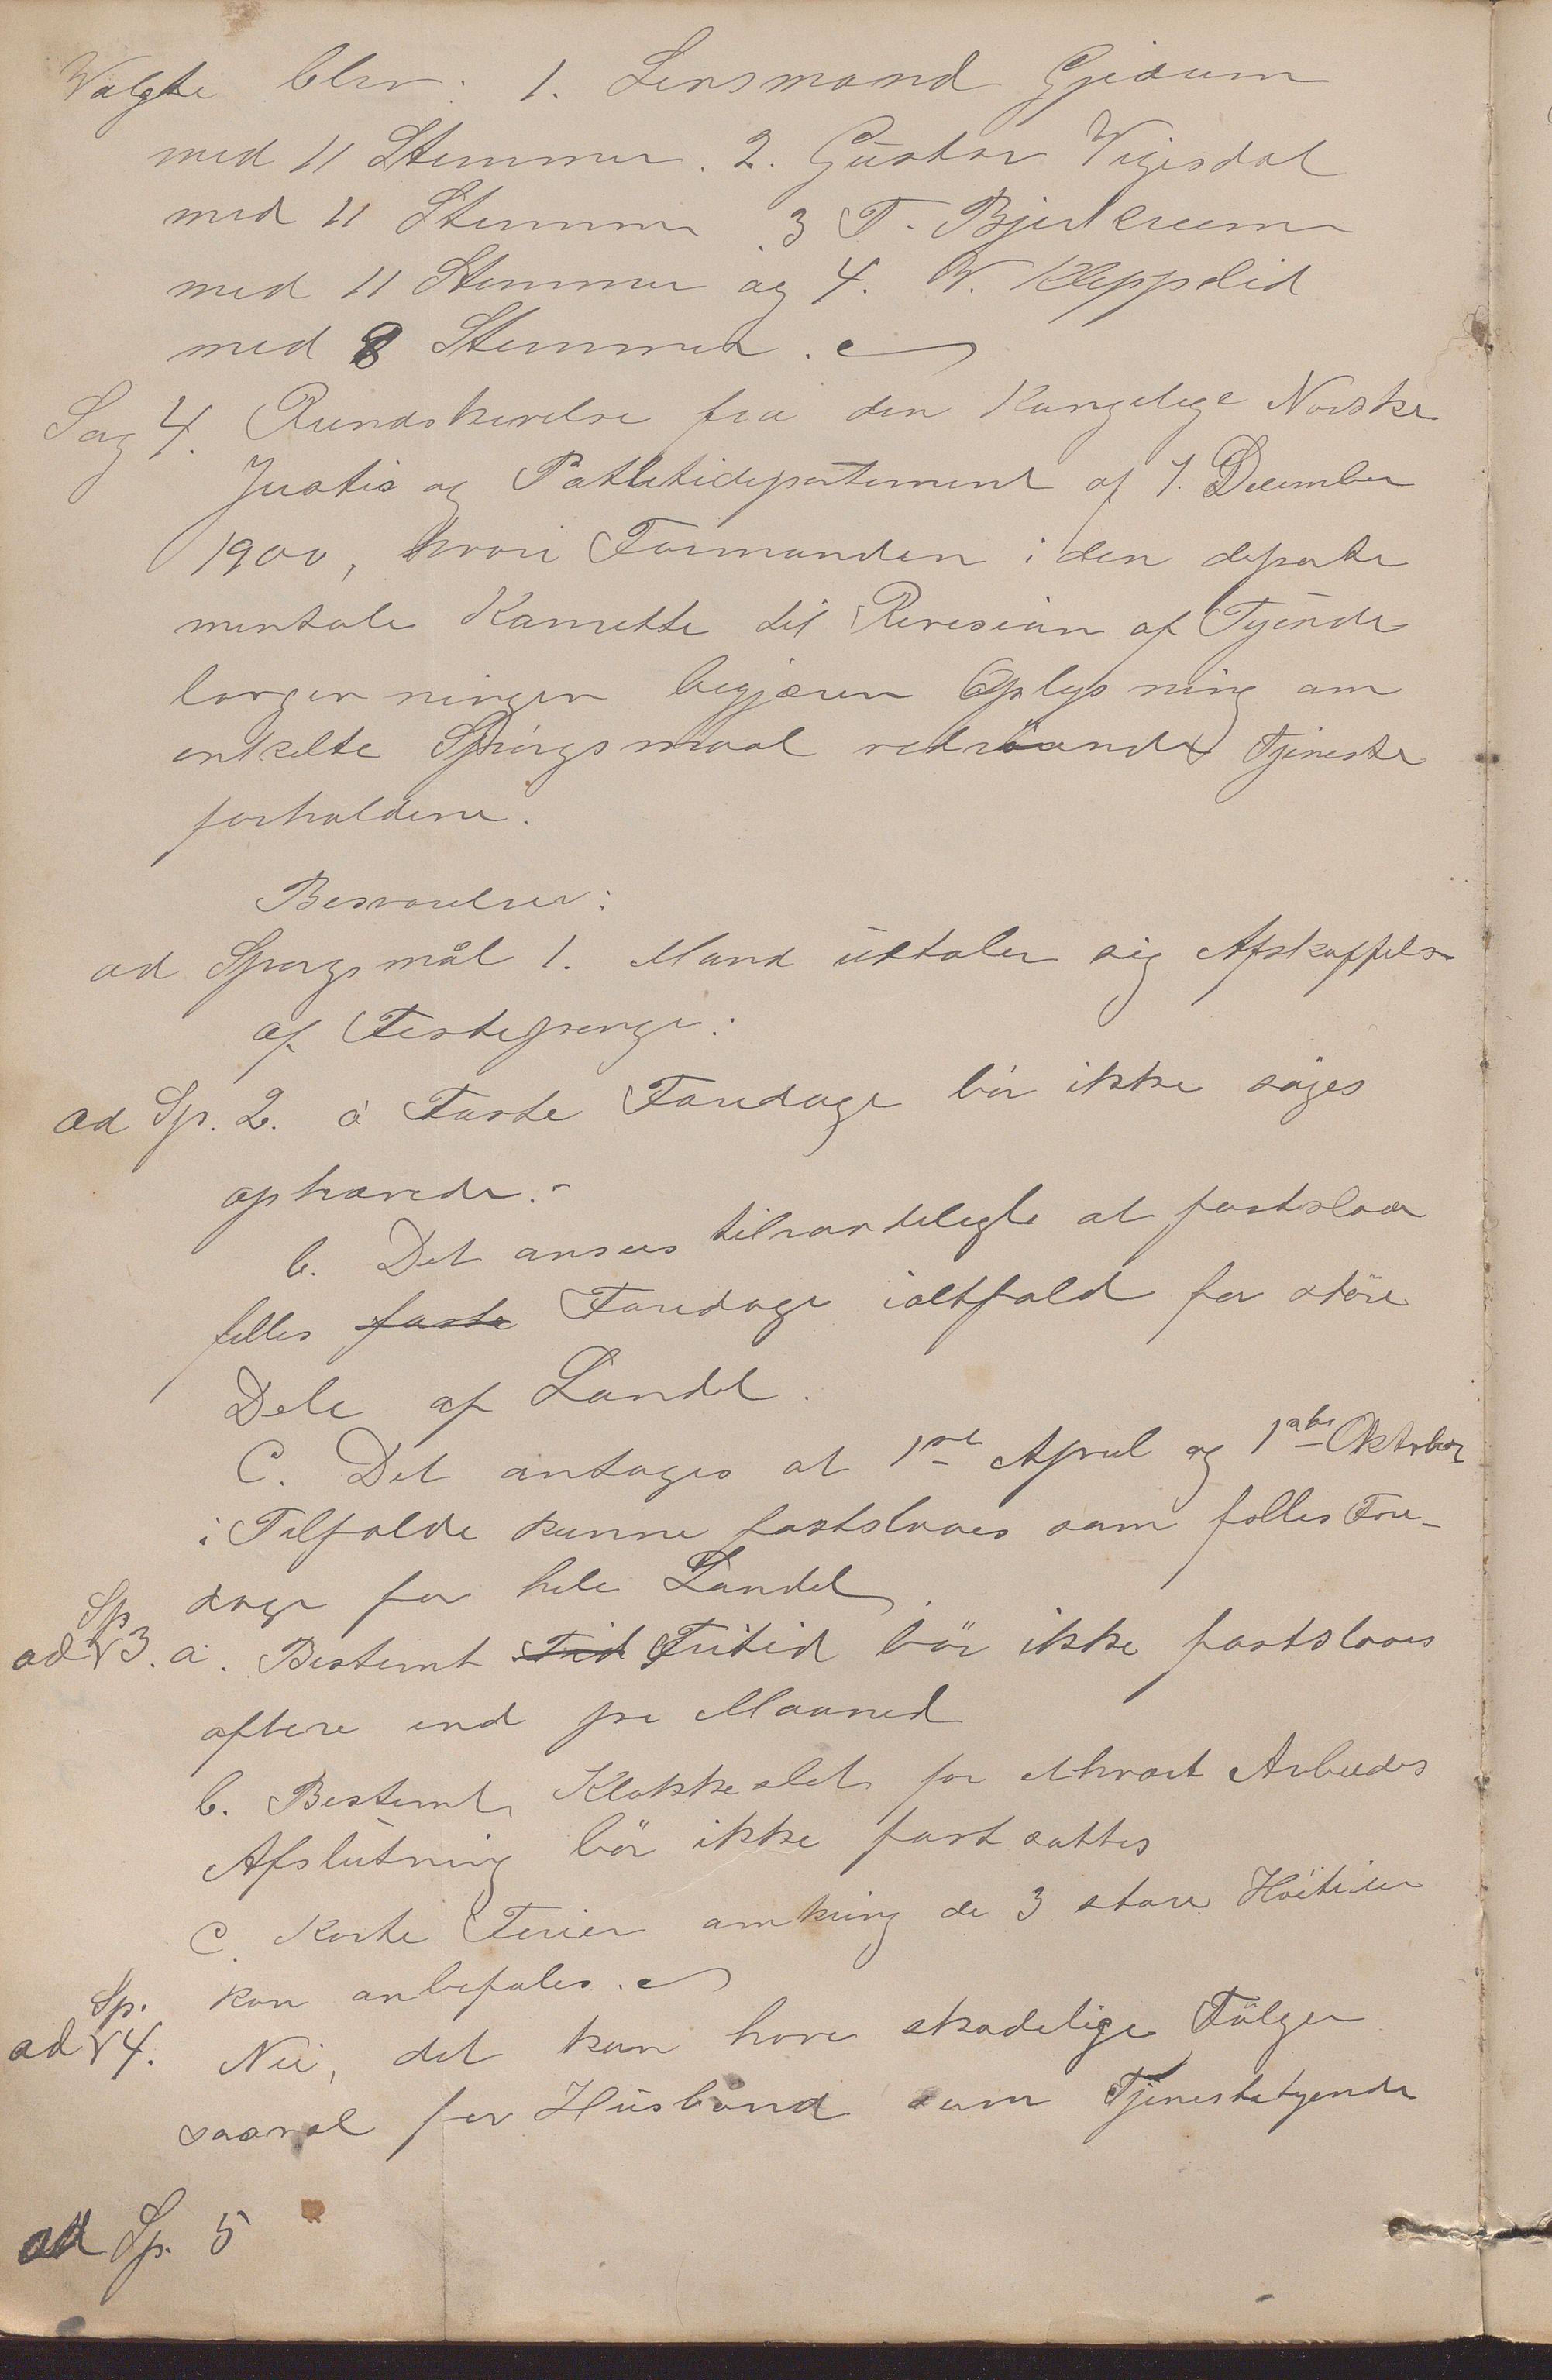 Valgte blev: 1. Lensmand Gjedrem
med 11 Stemmer. 2. Gustav Vigesdal
med 11 Stemmer 3 T. Bjerkreem
med 11 Stemmer og 4. W. Kleppelid
med 8 Stemmer.
Sag 4. Rundskrivelse fra den Kongelige Norske
Justis og Politidepartement af 1. December
1900, hvori Formanden i den departe
mentale Komitte til Revesion af Tyende
lovgivningen begjærer Oplysning om
enkelte Spörgsmaal vedrörende Tjeneste
forholdene.
Besvarelser:
ad Spørgsmål 1. Mand uttaler sig Afskaffelse
af Festepenge:
ad Sp. 2. a Faste Faredage bör ikke söges
ophævede.-
b. Det ansees tilraadeligt at fastslaa
felles faste Faredage ialtfald for störe
Dele af Landet.
C. Det antages at 1ste April og 1ste Oktober
i Tilfælde kunne fastslaaes som fælles Fare-
dage for hele Landet.
ad Sp 3. a. Bestemt Fritid bör ikke fastslaaes
oftere end pr Maaned
b. Bestemt Klokkeslet for ethvert Arbeides
Afslutning bör ikke fastsættes
C. Korte Ferier omkring de 3 store Höitider
kan anbefales.
ad Sp. 4. Nei, det kan have skadelige Fölger
saavel for Husbond som Tjenestetyende
ad Sp. 5